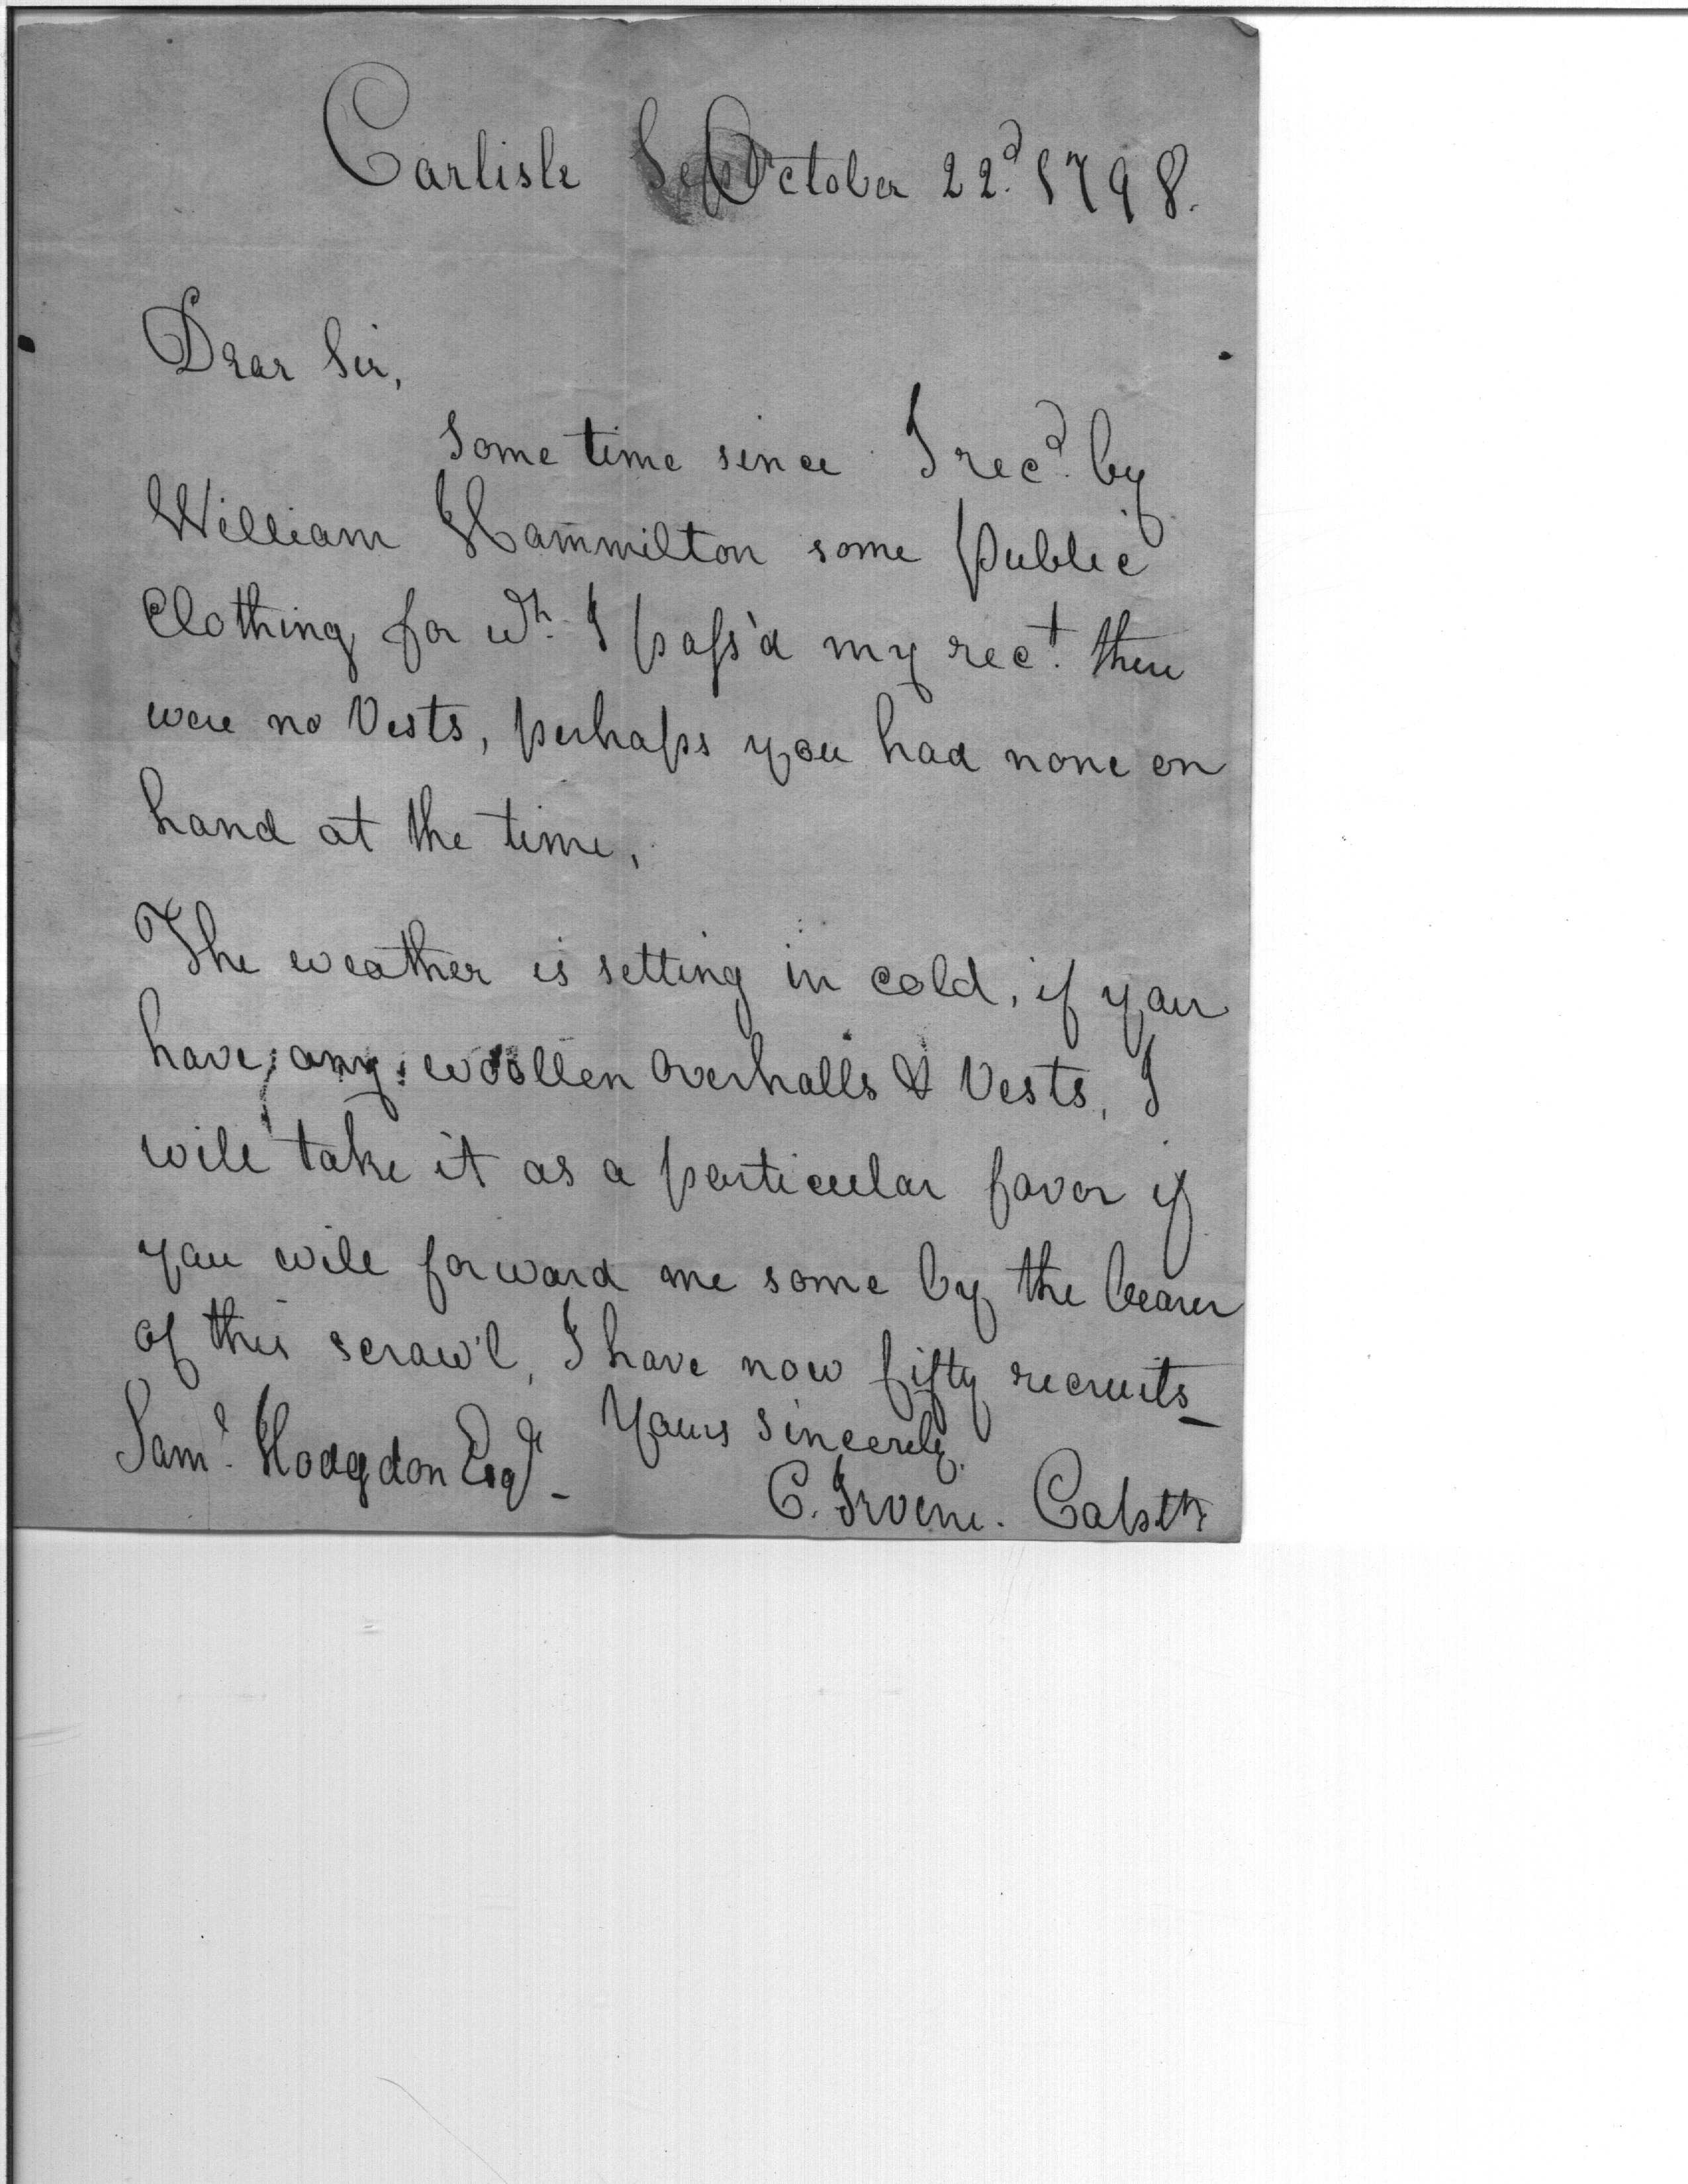 Carlisle October 22d. 1798.
Dear Sir,
Some time since I recd. by
William Hammilton some public
Clothing for wh. I pass'd my rect. there
were no Vests, perhaps you had none on
hand at the time,
The weather is setting in cold, if you
have any woollen Overhalls & Vests, I
will take it as a particular favor if
you will forward me some by the bearer
of this scrawl, I have now fifty recruits_
Yours sincerely,
Saml. Hodgdon Esqr. _
C. Irvine. Captn